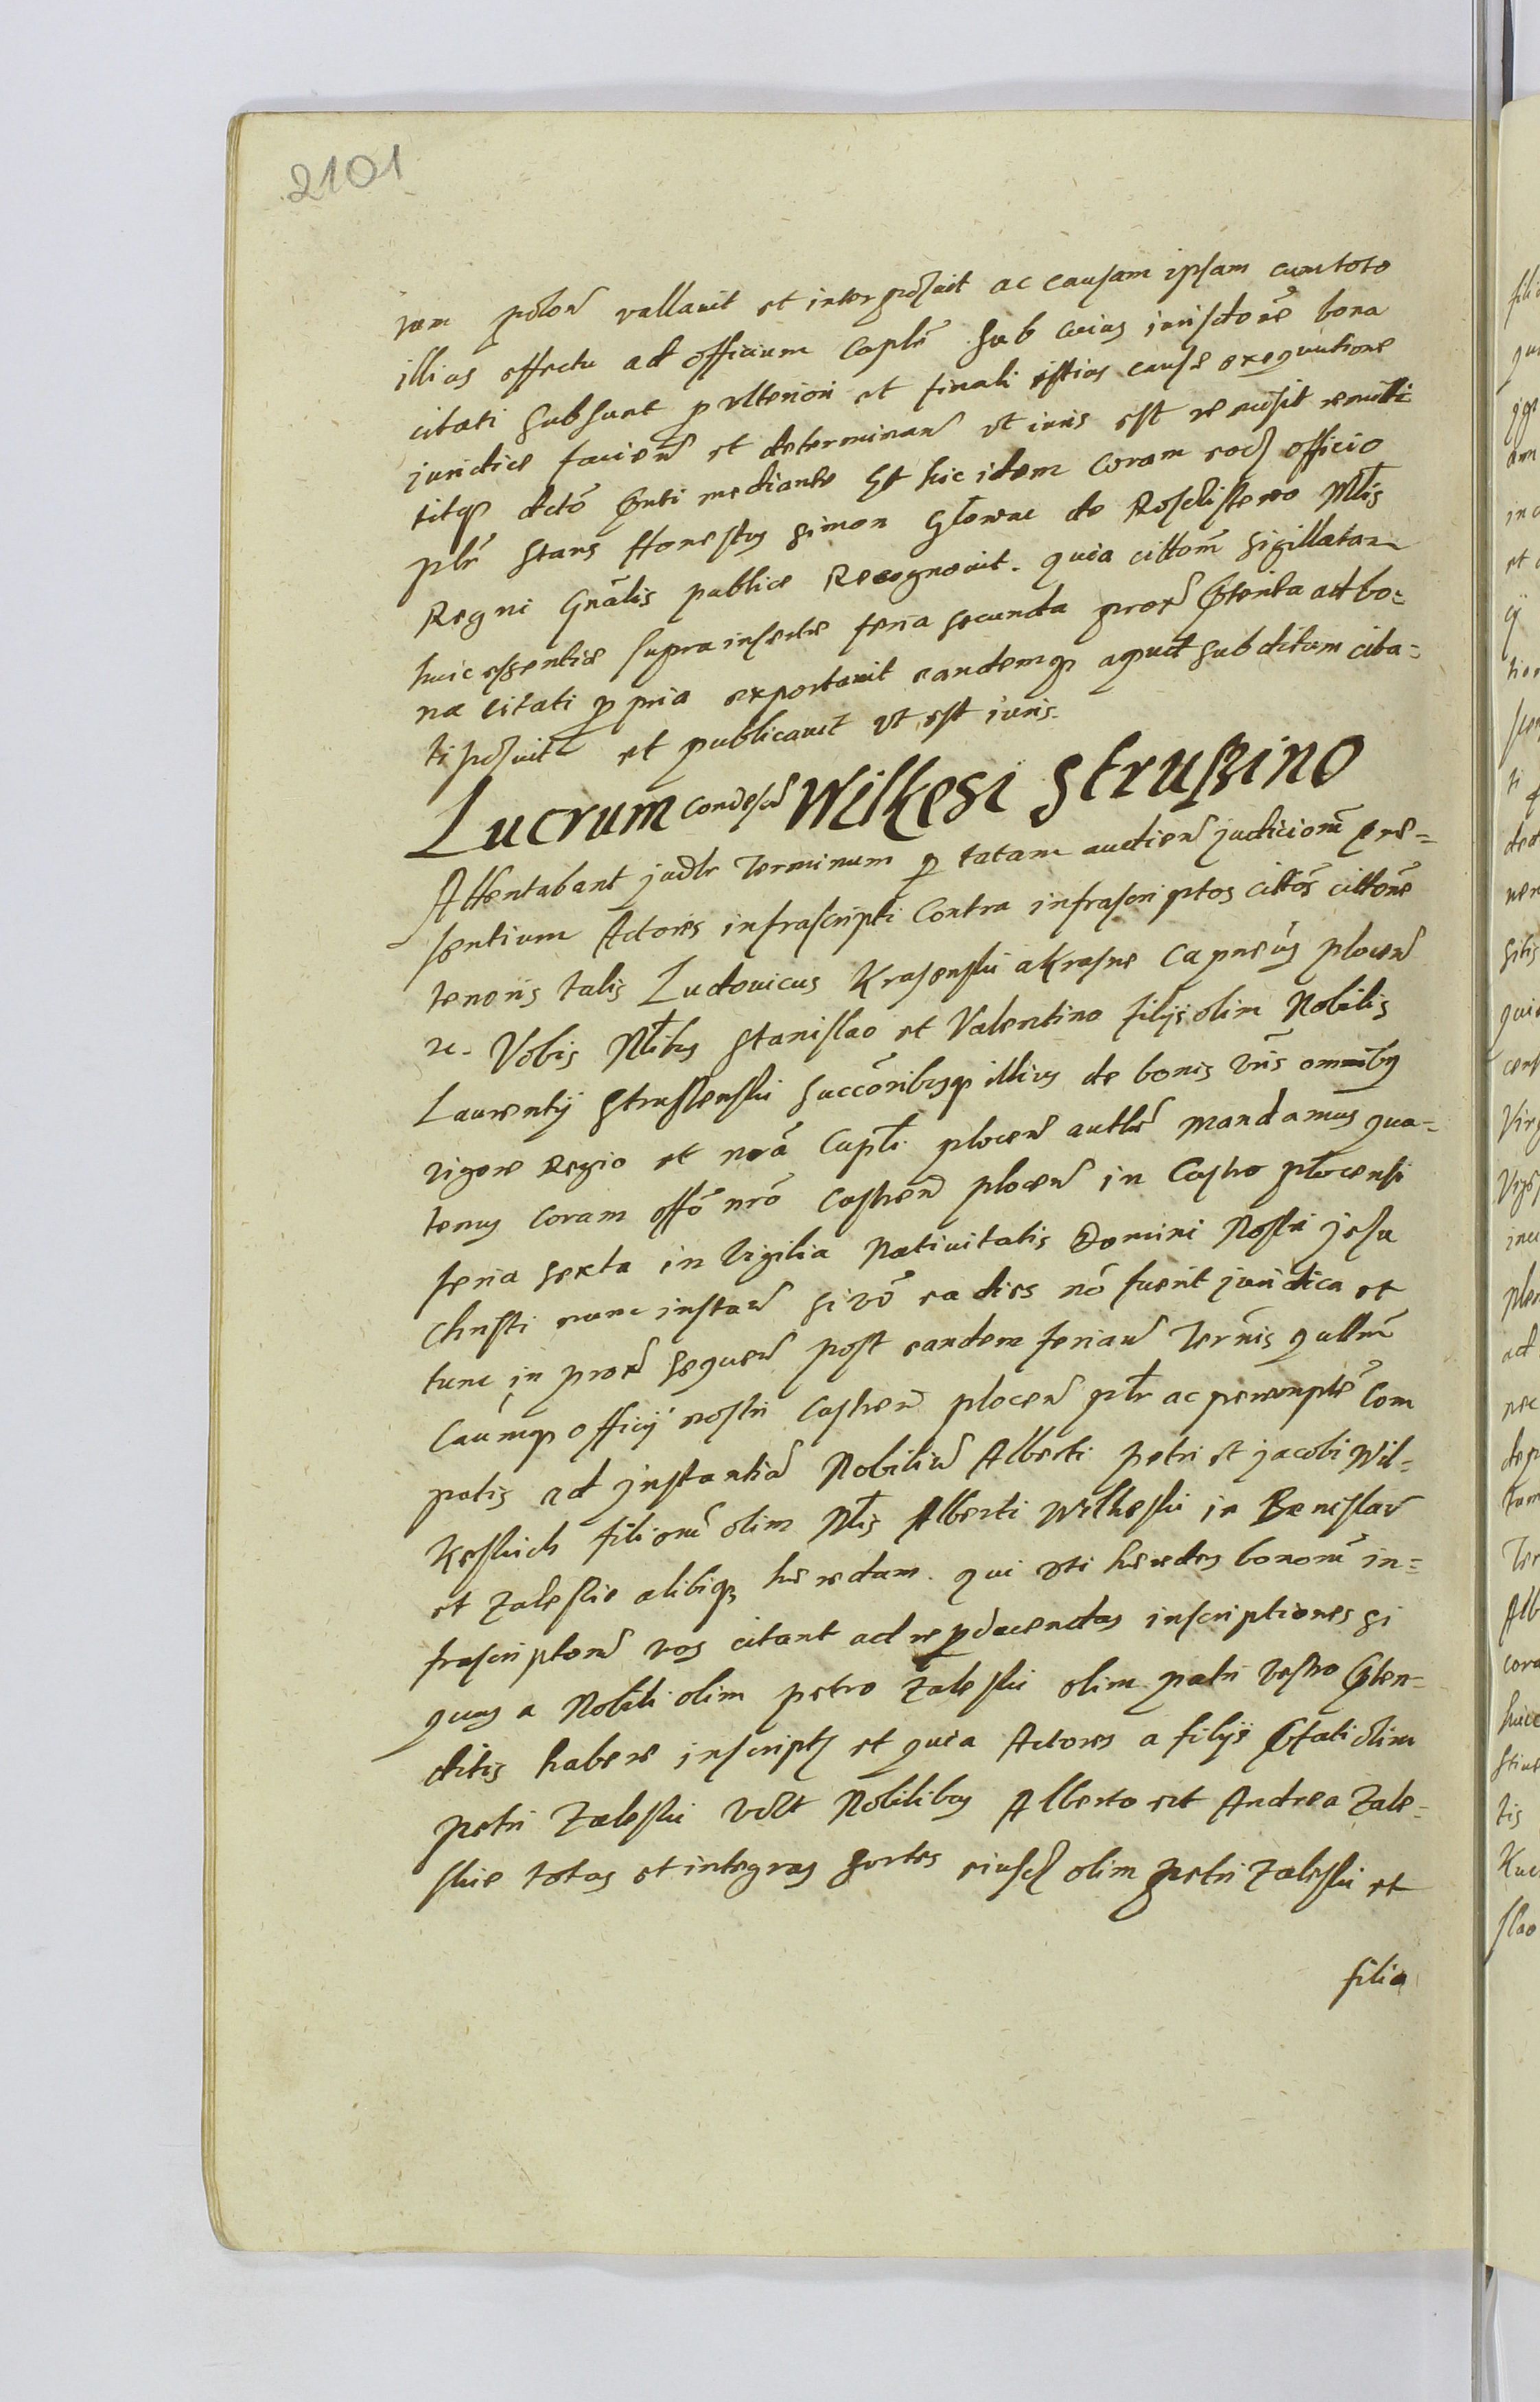 2101
ram polon vallauit et interposuit ac causam ipsam cum toto
illius effectu ad officium Capln sub cuius iurisdone bona
citati subsunt p vlteriori et finali istius cause exequutione
juridice faciend et determinand vt iuris est remisit remitti
titqz dcto pnti mediante Et hic idem Coram eodz officio
plr stans Honestus Simon Glowac de Mtis
Regni Gnalis publice Recognouit. quia cittom sigillatam
huic essentie suprainserte feria secunda prox pterita ad bo=
na citati p pria exportauit eandemqz apud subditum cita=
ti posuit et publicauit vt est iuris.
Lucrum Condesced Wilkesi Strußino
Attentabant judlr Terminum p totam audien judiciorum pre=
sentium Actores infrascripti Contra infrascriptos cittos cittone
tenoris talis Ludouicus Krasenski a Krasne Capneus plocen
zc. Vobis Nlibus Stanislao et Valentino filijs olim Nobilis
Laurentij Strussenski succoribusqz illius de bonis vris omnibus
vigore Regio et nra Caplt plocen autte mandamus qua=
tenus Coram offo nro Castren plocen in Castro plocensi
feria sexta in Vigilia Natiuitatis Domini Nostri jesu
Christi nunc instan si vo ea dies no fuerit juridica et
tunc in prox sequen post eandem feriam Termis qullm
Caumqz officij nostri Castren plocen plr ac peremptе Com
patis ad jnstantia Nobiliu Alberti petri et jacobi Wil=
keskich filiorum olim Nlis Alberti Wilkeski in
et Zaleskie alibiqz heredum. qui vti heredes bonorum in=
frascriptoru vos citant ad reproducendas inscriptiones si
quas a Nobili olim petro Zaleski olim patri vestro pten=
ditis habere inscriptz et quia Actores a filijs pfati olim
petri Zaleski vdlt Nobilibus Alberto et Andrea Zale=
skie totas et integras sortes eiusdz olim petri Zaleski et
filia